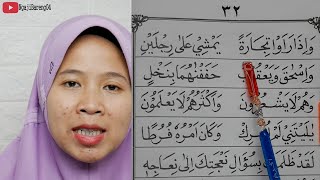 NgajiBareng04
٣٢
وَإِذَا رَأَوْا تِجَارَةً يَمْشِيْ عَلَى رِجْلَيْنِ
وَإِسْحٰقَ وَيَعْقُوْبَ حَفَفْنٰهُمَا بِنَخْلٍ
وَهُمْ لَا يَشْعُرُوْنَ وَأَكْثَرُهُمْ لَا يَعْلَمُوْنَ
يٰلَيْتَنِيْ لَمْ أُشْرِكْ وَكَانَ أَمْرُهُ فُرُطًا
لَقَدْ ظَلَمَكَ بِسُؤَالِ نَعْجَتِكَ إِلَى نِعَاجِهِ